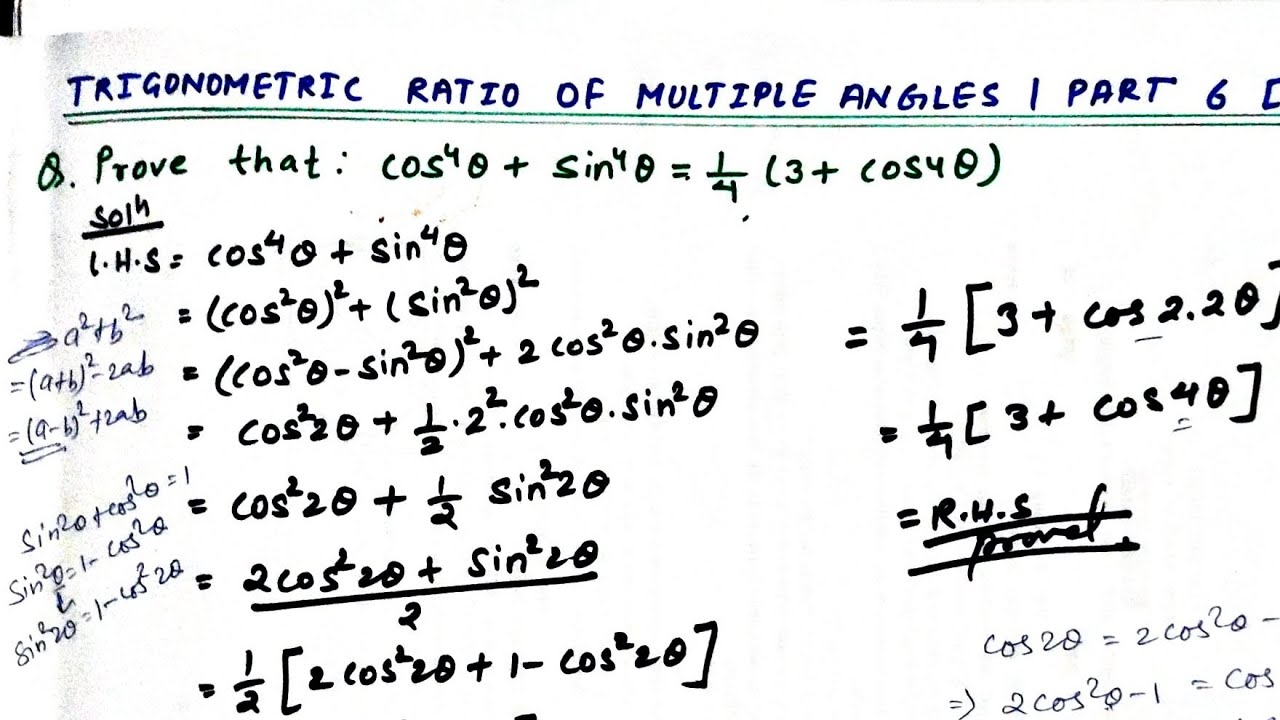 TRIGONOMETRIC RATIO OF MULTIPLE ANGLES | PART 6 [
Q. Prove that : cos⁴θ + sin⁴θ = 1/4 (3 + cos4θ)
Solⁿ
L.H.S = cos⁴θ + sin⁴θ
= (cos²θ)² + (sin²θ)²
= (cos²θ - sin²θ)² + 2 cos²θ . sin²θ
= cos²2θ + 1/2 . 2² . cos²θ . sin²θ
= cos²2θ + 1/2 sin²2θ
= (2cos²2θ + sin²2θ)/2
= 1/2 [2 cos²2θ + 1 - cos²2θ]
a² + b²
= (a+b)² - 2ab
= (a-b)² + 2ab
sin²θ + cos²θ = 1
sin²θ = 1 - cos²θ
sin²2θ = 1 - cos²2θ
= 1/4 [3 + cos 2.2θ]
= 1/4 [3 + cos4θ]
= R.H.S
proved
cos2θ = 2cos²θ -
⇒ 2cos²θ - 1 = cos